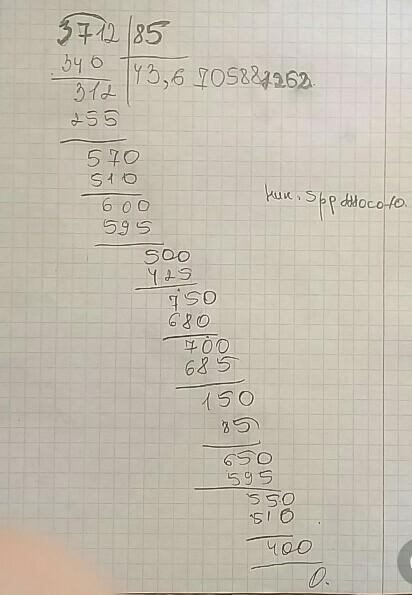 3712 | 85
340 | 43,6 70588
312
255
570
510
600
595
500
425
750
680
700
685
150
85
650
595
550
510
400
0.